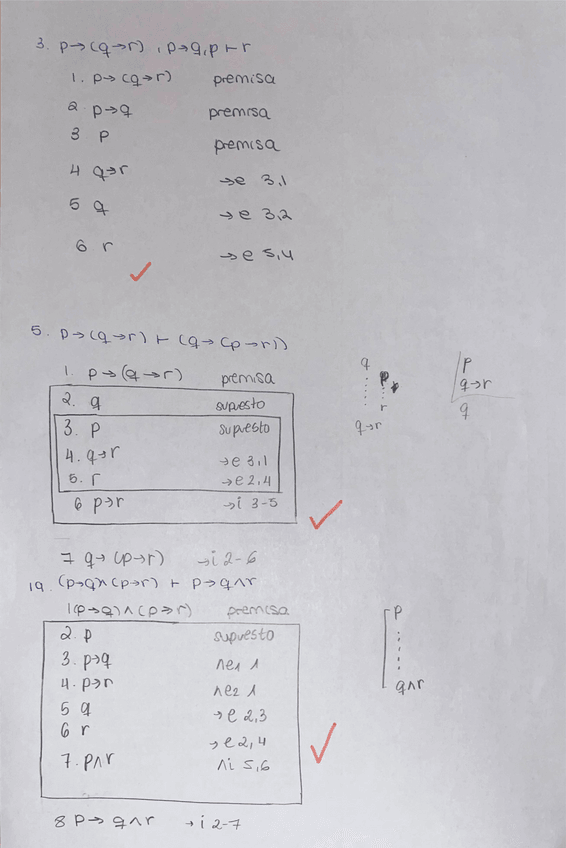 3. p→(q→r), p→q, p ⊢ r
1. p→(q→r) premisa
2 p→q premisa
3 p premisa
4 q→r →e 3,1
5 q →e 3,2
6 r →e 5,4
5. p→(q→r) ⊢ (q→(p→r))
1. p→(q→r) premisa
2. q supuesto
3. p supuesto
4. q→r →e 3,1
5. r →e 2,4
6 p→r →i 3-5
7 q→(p→r) →i 2-6
q
p p
r
q→r
p
q→r
q
19. (p→q)∧(p→r) ⊢ p→q∧r
1(p→q)∧(p→r) premisa
2. p supuesto
3. p→q ∧e1 1
4. p→r ∧e2 1
5 q →e 2,3
6 r →e 2,4
7. p∧r ∧i 5,6
8 p→q∧r →i 2-7
p
q∧r